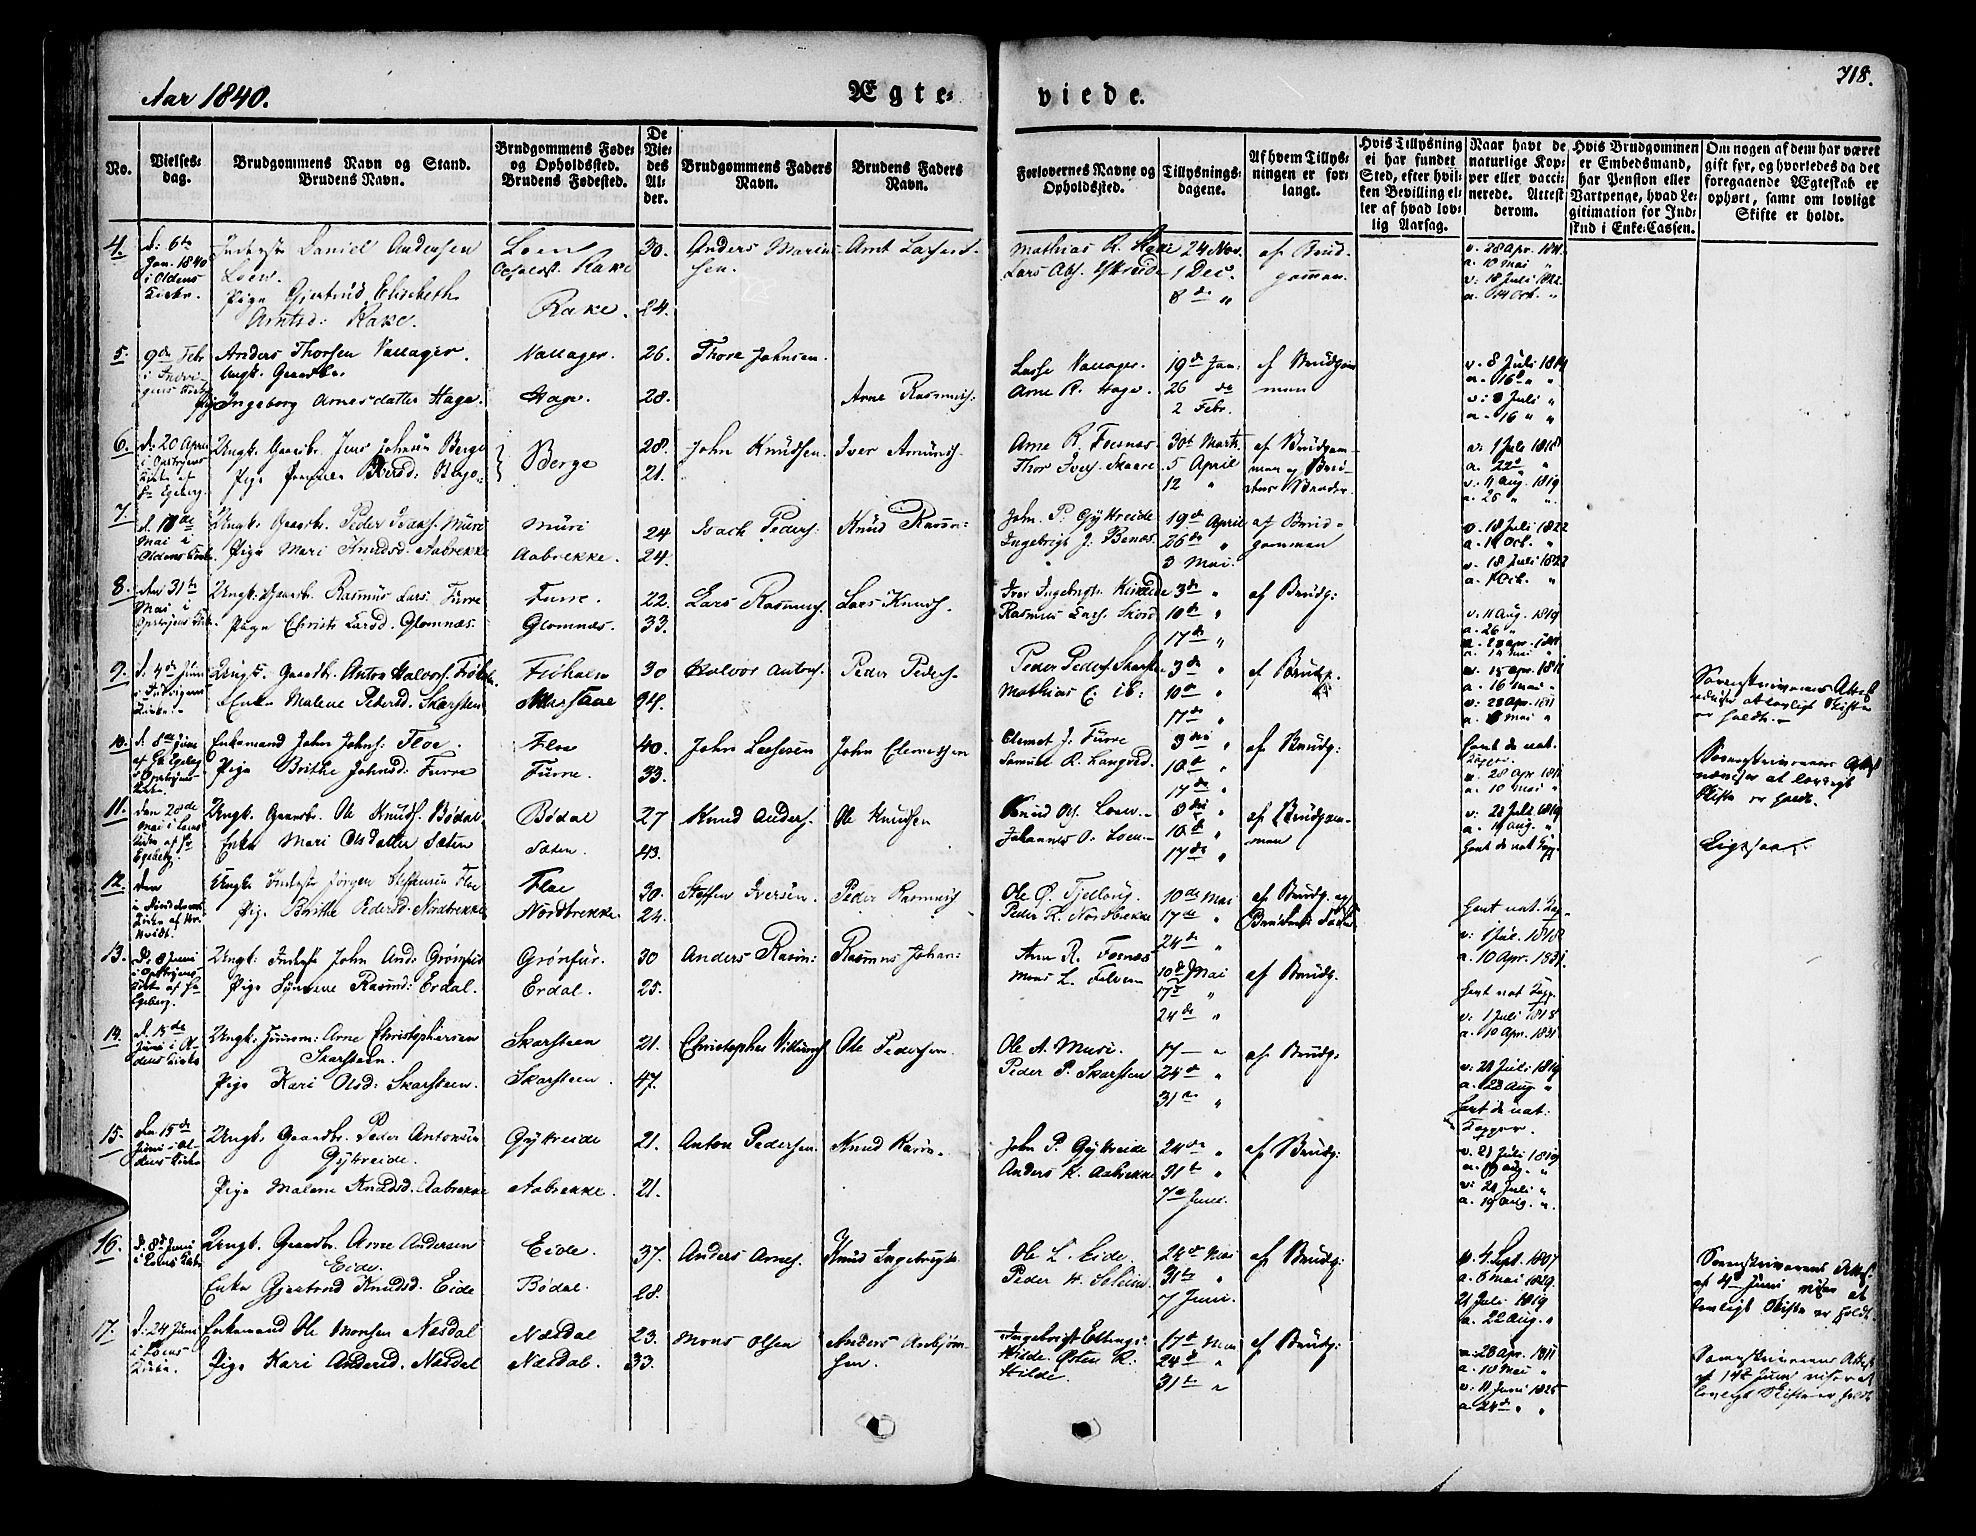 718.
Aar 1840.
Ægte-
viede.
No.
Vielses-
dag.
Brudgommens Navn og Stand.
Brudens Navn.
Brudgommens Føde-
og Opholdssted.
Brudens Fødested.
De
Vie-
des
Al-
der.
Brudgommens Faders
Navn.
Brudens Faders
Navn.
Forlovernes Navne og
Opholdssted.
Tillysnings-
dagene.
Af hvem Tillys-
ningen er for-
langt.
Hvis Tillysning
ei har fundet
Sted, efter hvil-
ken Bevilling el-
ler af hvad lov-
lig Aarsag.
Naar havt de
naturlige Kop-
per eller vacci-
nerede. Attest
derom.
Hvis Brudgommen
er Embedsmand,
har Pension eller
Vartpenge, hvad Le-
gitimation for Ind-
skud i Enke-Cassen.
Om nogen af dem har været
gift før, og hvorledes da det
foregaaende Ægteskab er
ophørt, samt om lovligt
Skifte er holdt.
4.
d: 6te
Jan. 1840
i Oldens
Kirke.
Inderste Daniel Andersen
Loen
Pige Gjertrud Elisabeth
Arntsd: Rake.
Loen
Opholdst. Rake
Rake.
30.
24.
Anders Marius-
sen.
Arnt Lassens.
Mathias R.
Lars Abs.
24 Nov.
1 Dec.
8 de "
af Brud-
gommen
v. 28 Apr. 1811.
a. 10 Mai "
v: 18 Juli 1822.
a. 14 Oct. "
5.
9de Febr
i Indvi-
gens Kirke
Anders Thorsen Vallager.
Ungk. Gaardbr.
Pige Ingeborg Arnesdatter Hage.
Vallager.
Hage.
26.
28.
Thore Johnsen.
Arne Rasmuss.
Lasse Vallager.
Arne R. Hage.
19de Jan:
26 de
2 Febr.
af Brudgom
men
v. 8 Juli 1814
a. 16 " "
v: 8 Juli "
a. 16 " "
6.
d. 20 April
i Opstryens
Kirke af
Hr Egeberg.
Ungk. Gaardbr. Jens Johnsen Berge
Berge
28.
21.
John Knudsen.
Iver Amunds.
Arne R. Fosnes
Thor Ivers. Skaare
30te Marts.
5 April
12 "
af Brudgom-
men og Bru-
dens Broder.
v: 1 Juli 1818
a. 22 "
v: 11 Aug. 1819
a. 26 " "
7.
d. 18de
Mai i
Oldens Kirke
Ungk. Gaardbr. Peder Isaks. Muri
Pige Mari Knudsd. Aabrekke
Muri
Aabrekke.
24
24.
Isach Peders:
Knud Rasm:
John. P. Gytreide
Ingebrigt J. Benes.
19de April
26de "
3 Mai.
af Brud-
gommen
v. 18 Juli 1822
a. 14 Oct. "
v. 18 Juli 1822
a. 14 Oct. "
8.
den 31te
Mai i
Opstryens Kirke.
Ungk: Gaardbr. Rasmus Lars. Furre
Pige Christi Larsd. Glomnæs.
Furre.
Glomnæs.
22.
33.
Lars Rasmuss.
Lars Knuds.
Iver Ingebrigts.
Rasmus Larss.
3de "
10de "
17de "
af Brudg:
v. 11 Aug. 1819
a. 26 "
v. 28 Apr. 1811
a. 10 Mai "
9.
d. 4de Juni
i Indvigens
Kirke.
Ungk. Gaardbr. Anton Halvors. Frøholm
Enke Malene Pedersd. Skarsten
Frøholm
30
34.
Halvor Antons.
Peder Peders.
Peder Peders. Skarsten
Mathias E. ib:
3de "
10de "
17de "
af Brudg.
v. 15 Apr. 1811
a. 16 Mai "
v: 28 Apr. 1811
a. 8 Mai "
Sorenskriverens Attest
udviser at lovligt Skifte
er holdt.
10.
d. 8de Juni
af Hr Egeberg
i Opstryens
Kirke.
Enkemand John Johns: Floe.
Pige Brithe Johnsd: Furre
Floe
Furre.
40.
33.
John Lassesen
John Clemetsen
Clemet J. Furre
Samuel R. Langsed.
3die "
10de "
17de "
af Brudg:
havt de nat.
Kopper.
v. 28 Apr 1811
a. 10 Mai "
Sorenskriverens Attest
udviser at lovligt
Skifte er holdt.
11.
den 28de
Mai i Loens
Kirke af Hr
Egeberg.
Ungk. Gaardbr. Ole Knuds. Bødal.
Enke Mari Olsdatter Sæten
Bødal
Sæten.
27
43.
Knud Anders.
Ole Knudsen
Knud Ols. Loen.
Johannes O. Loen.
3die "
10de "
17de "
af Brudgom-
men
v: 21 Juli 1819
a. 19 Aug. "
havt de nat. Kopp.
Ligesaa.
12.
den
i Hornindal
Kirke af Hr.
Hvidt.
Ungk. Inderste Jørgen Steffensen Floe
Pige Brithe Pedersd: Nordbrekke
Floe
Nordbrekke.
30.
24.
Steffen Iversen.
Peder Rasmuss
Ole O. Tjellaug.
Peder R. Nordbrekke
10de Mai
17de "
24de "
af Brudg. og
Brudens Fader
havt nat. Kop-
v: 1 Juli 1818
a. 10 Apr. 1831.
13.
d. 8 Juni
i Opstryens
Kirke af Hr
Egeberg.
Ungk: Inderste John And: Grønfur
Pige Synneve Rasmusd: Erdal.
Grønfur.
Erdal.
30
25.
Anders Rasm:
Rasmus Johan:
Arne R. Fosnes
Mons L.
10de Mai
17de "
24de "
af Brudg.
havt nat Kopp.
v: 1 Juli 1818
a. 10 Apr. 1831.
14.
d. 15de
Juni i Ol-
dens Kirke
Ungk: Huusm: Arne Christophersen
Skarsteen.
Pige Kari Olsd: Skarsteen.
Skarsteen
Skarsteen.
21.
47.
Christopher Willums.
Ole Pedersen.
Ole A. Muri.
Peder P. Skarsten
17 — "
24de "
31te "
af Brudg:
v: 21 Juli 1819
a. 23 Aug. "
havt de nat:
Kopper.
15.
den 15de
Juni i Ol-
dens Kirke
Ungk. Gaardbr. Peder Antonsen
Gytreide.
Pige Malene Knudsd. Aabrekke
Gytreide
Aabrekke.
21.
21.
Anton Pedersen.
Knud Rasm.
John P. Gytreide
Anders K. Aabrekke
24de "
31te "
7de Juni.
af Brudg:
v. 21 Juli 1819
a. 19 Aug. "
v: 21 Juli "
a. 19 Aug. "
16.
d. 8de Juni
i Loens Kirke
Ungk. Gaardbr. Arne Andersen
Eide.
Enke Gjertrud Knudsd. Eide
Eide.
Bødal.
37.
28.
Anders Arnes.
Knud Ingebrigts.
Ole L. Eide.
Peder H.
24de Mai
31te "
7 Juni.
af Brudg:
v. 4 Sept. 1807
a. 6 Mai 1829
21 Juli 1819
a. 22 Aug. "
Sorenskriverens Attest
af 4 Juni viser at
lovligt Skifte er holdt.
17.
d: 24 Juni
i Loens
Kirke.
Enkemand Ole Monsen Næsdal
Pige Kari Andersd. Næsdal
Næsdal
Næsdal.
23.
33.
Mons Olsen
Anders Asbjørn-
sen.
Ingebrigt Ellings:
Hilde. Østen R.
Hilde.
17de Mai
24de "
31te "
af Brudg:
v. 28 Apr. 1811
a. 10 Mai "
v: 11 Juni 1825
a. 24de " "
Sorenskriverens Attest
af 14de Juni viser at
lovligt Skifte er holdt